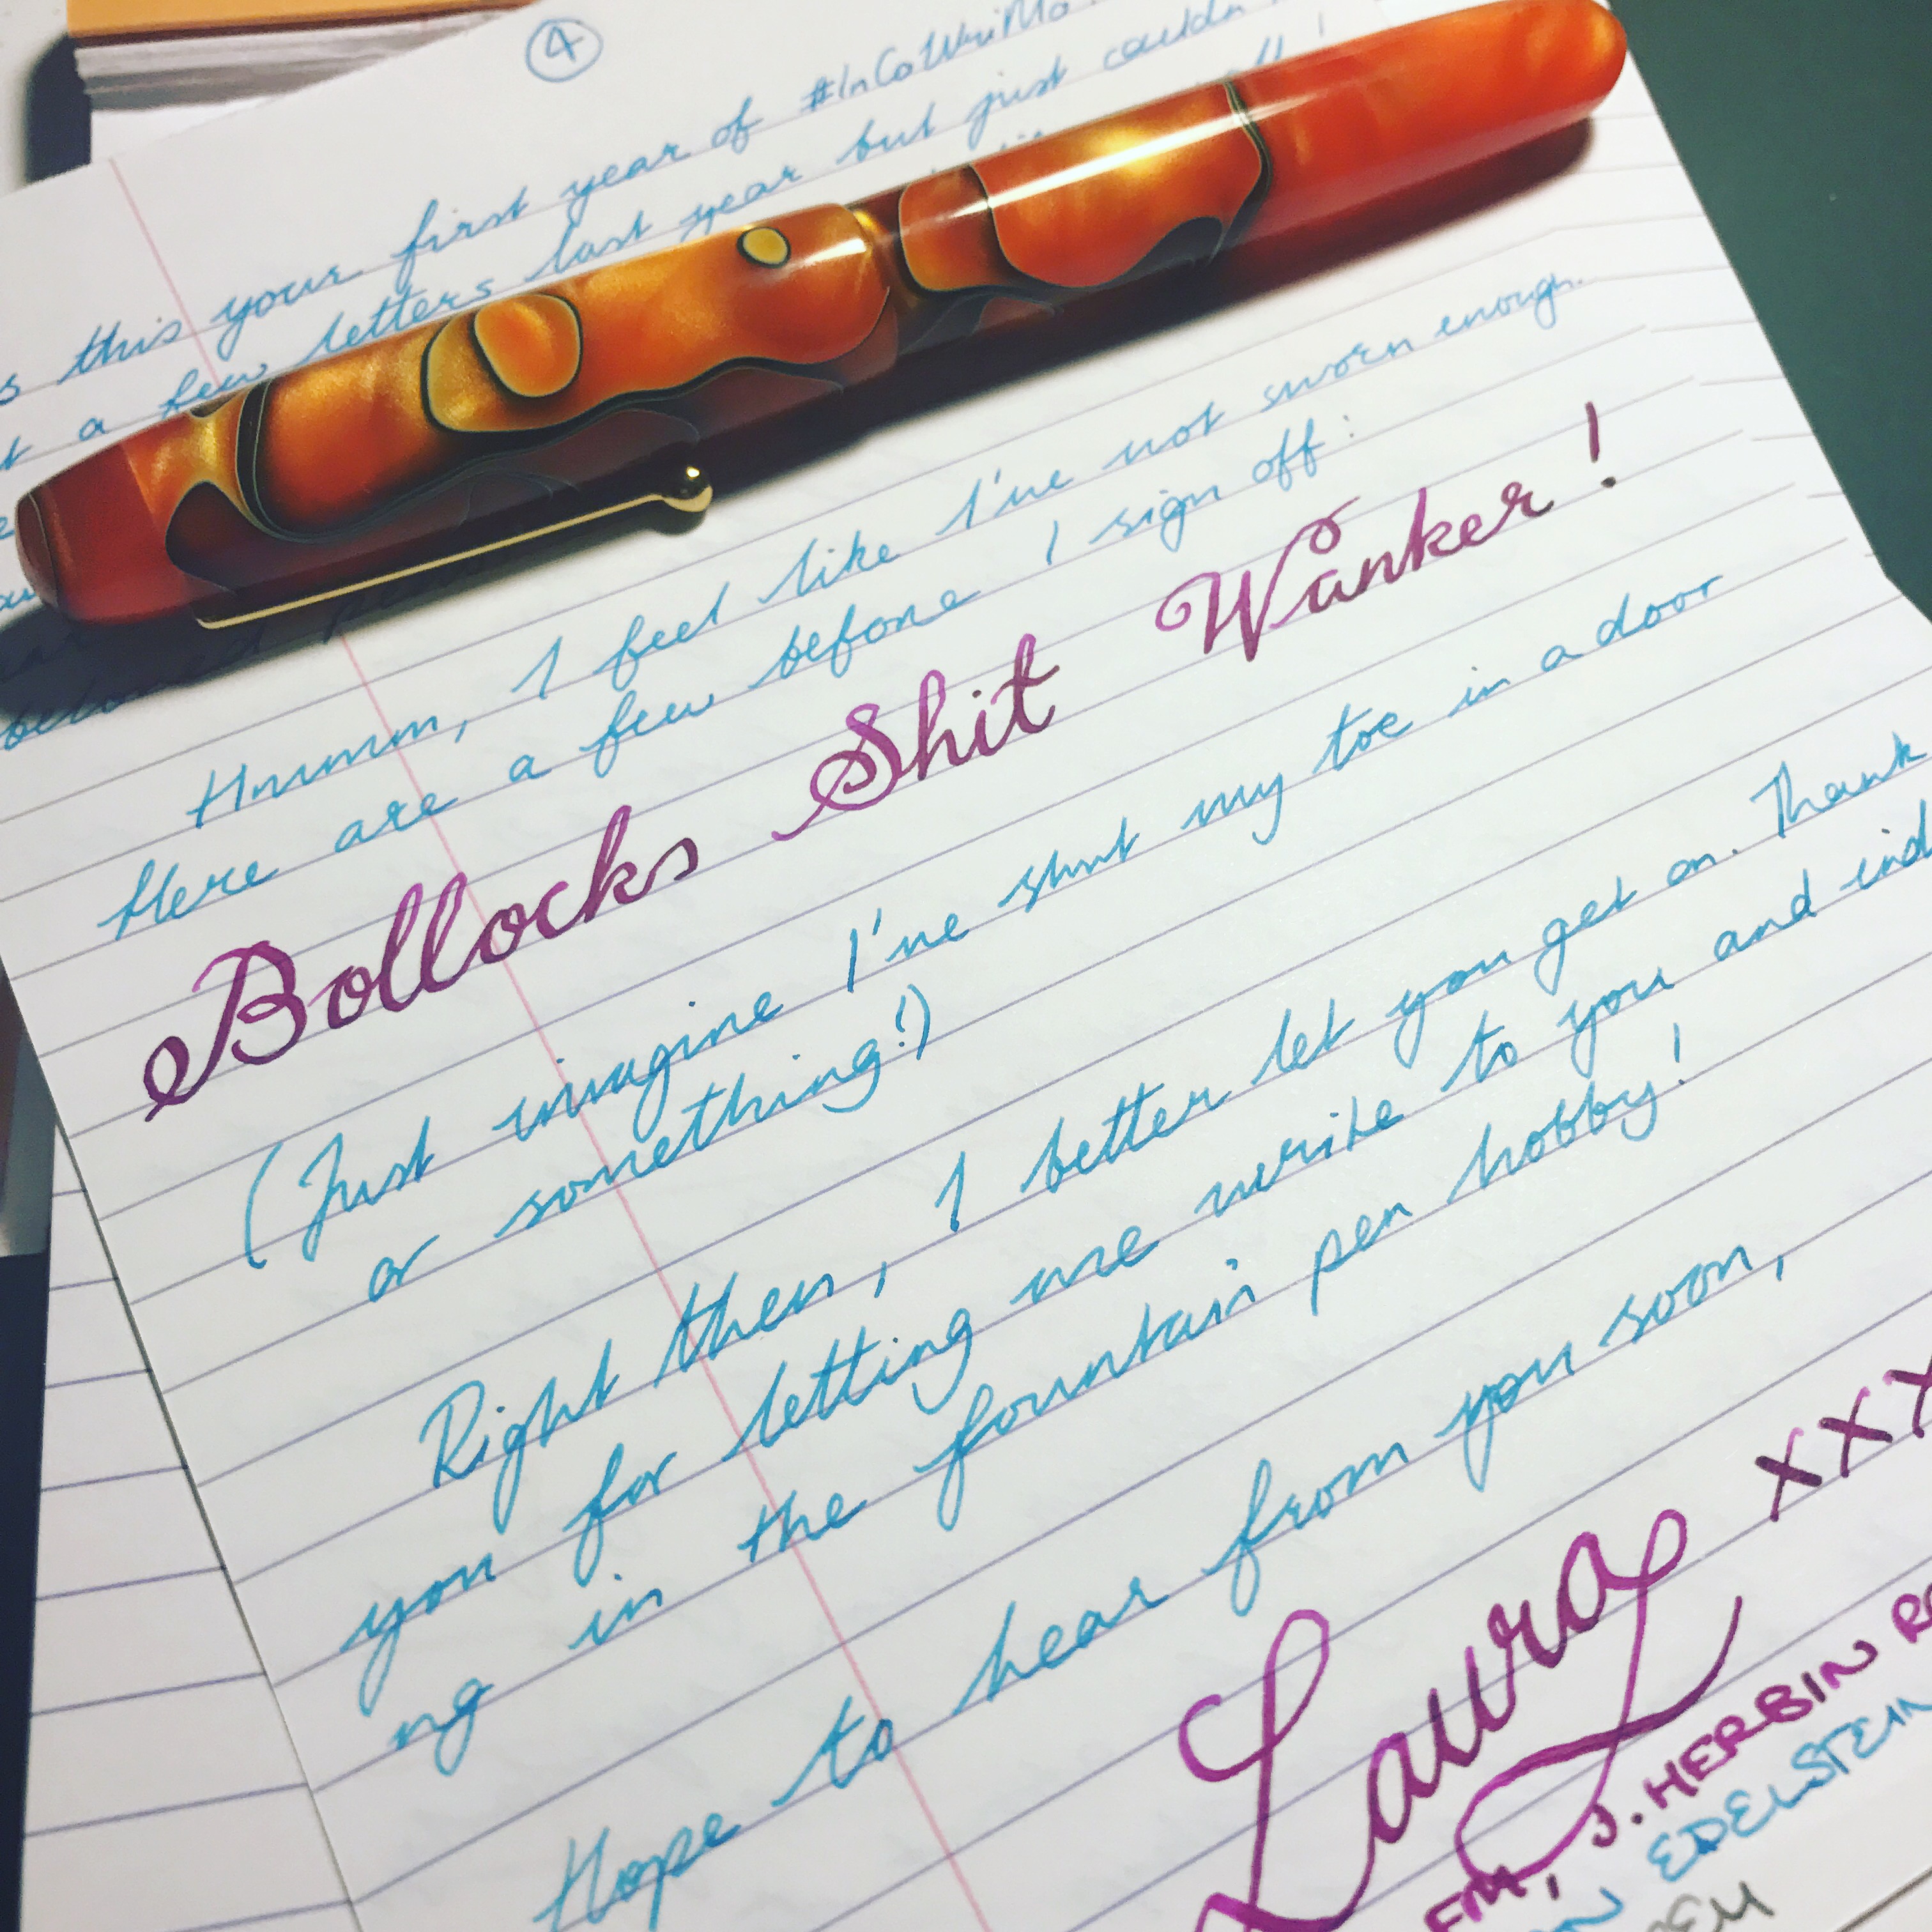 4
s this your first year of #InCoWriMo
a few letters last year but just couldn
Hmmm, I feel like I've not sworn enough.
Here are a few before I sign off:
Bollocks Shit Wanker!
(Just imagine I've shut my toe in a door
or something!)
Right then, I better let you get on. Thank
you for letting me write to you and ind
ng in the fountain pen hobby!
Hope to hear from you soon,
Laura xxx
FM, J. HERBIN RO
EDELSTEIN